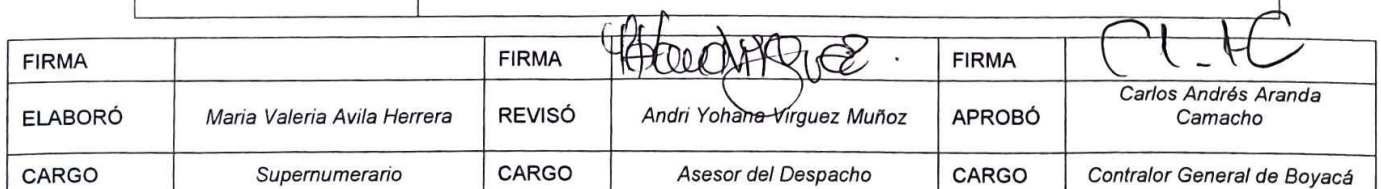 FIRMA FIRMA FIRMA
ELABORÓ Maria Valeria Avila Herrera REVISÓ Andri Yohana Virguez Muñoz APROBÓ Carlos Andrés Aranda
Camacho
CARGO Supernumerario CARGO Asesor del Despacho CARGO Contralor General de Boyacá